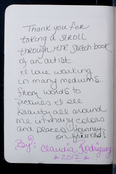 Thank you for
taking a stroll
through the sketch book
of an artist
I love working
in many mediums
from words to
pictures I see
Beauty all around
me in many colors
and places. Journey
on friends!
By: Claudia Rodriguez
2012